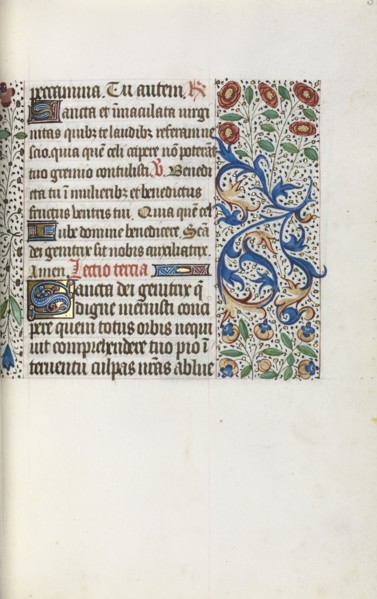 peccamina. Tu autem. R
Sancta et īmaculata virgi
nitas quibꝫ te laudibꝫ referam ne
scio. quia quē celi capere nō poterāt
tuo gremio contulisti. V. Benedi
cta tu ī mulieribꝫ et benedictus
fructus ventris tui. Quia quē cel
Iube domine benedicere. Scā
dei genitrix sit nobis auxiliatrix.
Amen. Lectio tercia
Sancta dei genitrix q̄
digne meruisti conci
pere quem totus orbis nequi
uit comprehendere tuo pio ī
teruentu culpas nr̄as ablue